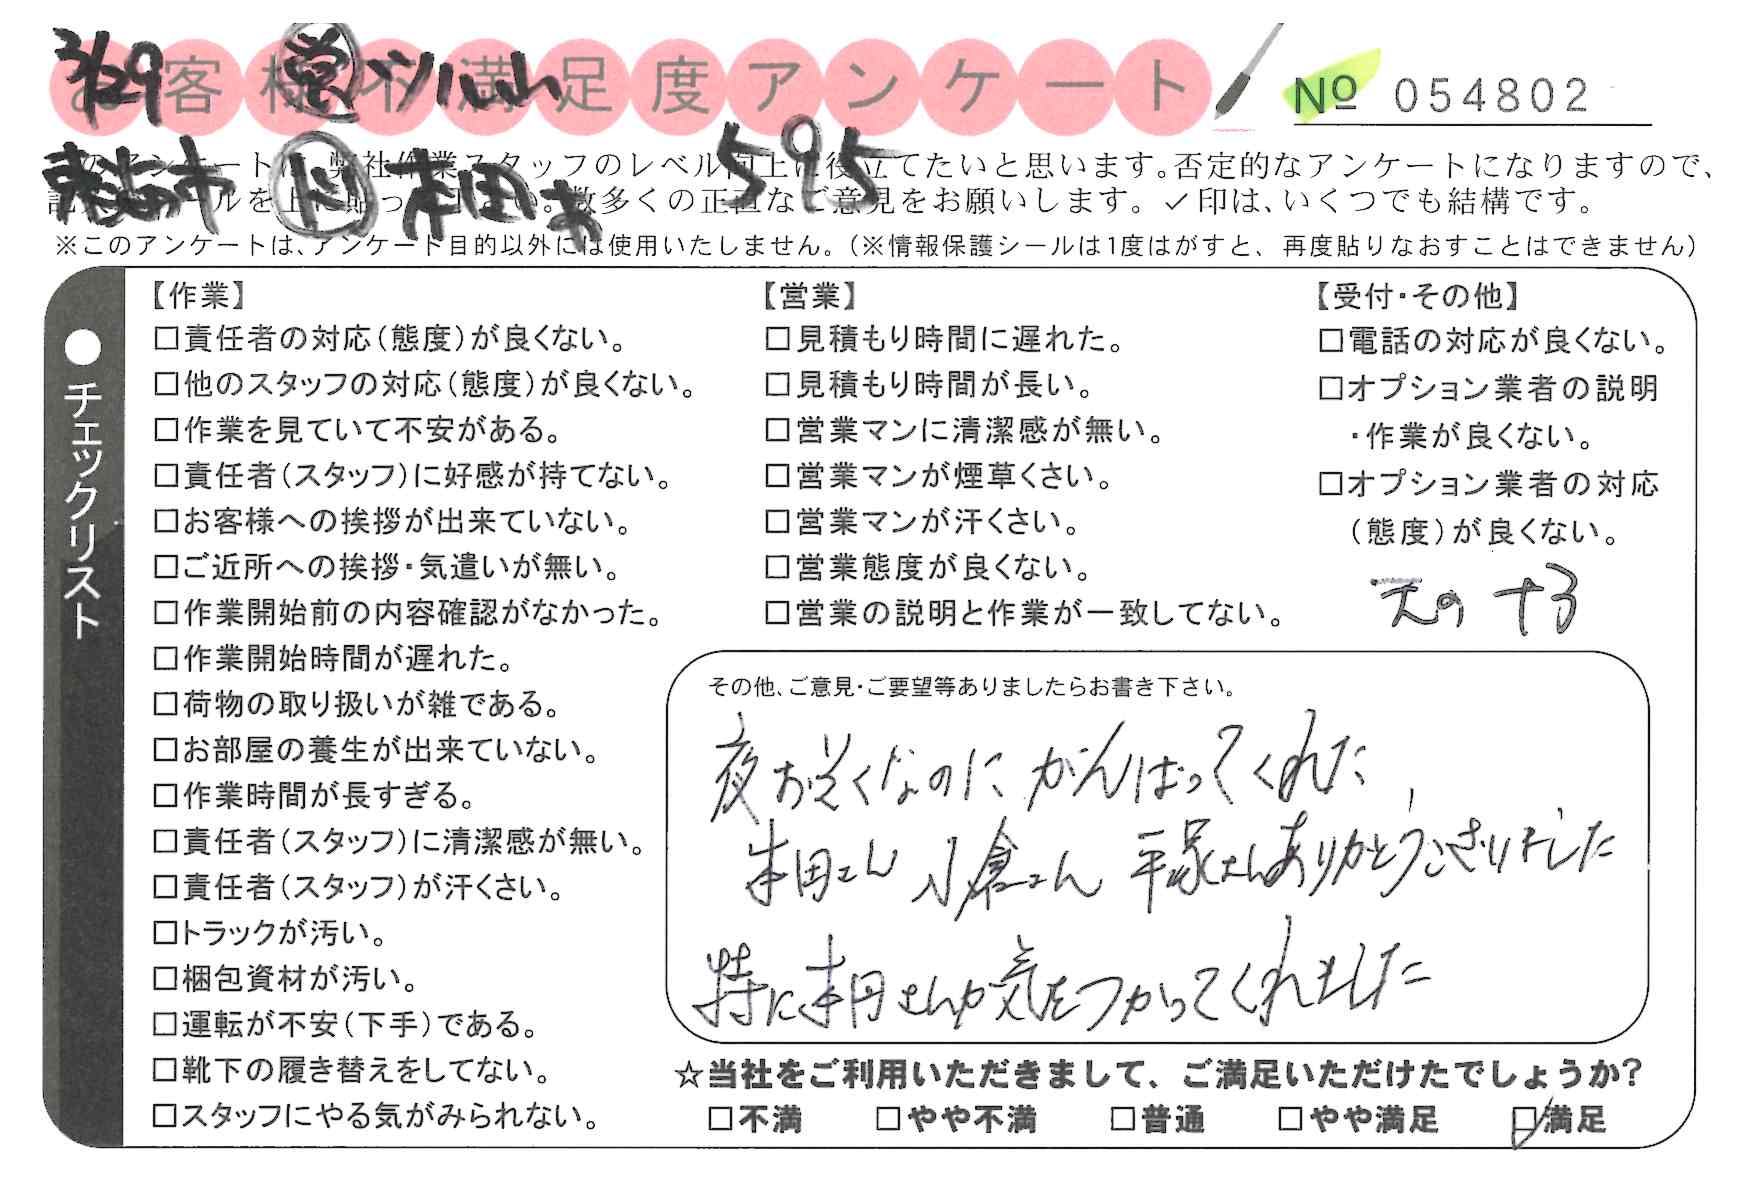 3/29 営
お客様不満足度アンケート
№ 054802
東海市 本田 595
このアンケートは、弊社作業スタッフのレベル向上に役立てたいと思います。否定的なアンケートになりますので、
数多くの正直なご意見をお願いします。✓印は、いくつでも結構です。
※このアンケートは、アンケート目的以外には使用いたしません。(※情報保護シールは1度はがすと、再度貼りなおすことはできません)
●チェックリスト
【作業】
□責任者の対応(態度)が良くない。
□他のスタッフの対応(態度)が良くない。
□作業を見ていて不安がある。
□責任者(スタッフ)に好感が持てない。
□お客様への挨拶が出来ていない。
□ご近所への挨拶・気遣いが無い。
□作業開始前の内容確認がなかった。
□作業開始時間が遅れた。
□荷物の取り扱いが雑である。
□お部屋の養生が出来ていない。
□作業時間が長すぎる。
□責任者(スタッフ)に清潔感が無い。
□責任者(スタッフ)が汗くさい。
□トラックが汚い。
□梱包資材が汚い。
□運転が不安(下手)である。
□靴下の履き替えをしてない。
□スタッフにやる気がみられない。
【営業】
□見積もり時間に遅れた。
□見積もり時間が長い。
□営業マンに清潔感が無い。
□営業マンが煙草くさい。
□営業マンが汗くさい。
□営業態度が良くない。
□営業の説明と作業が一致してない。
【受付・その他】
□電話の対応が良くない。
□オプション業者の説明
・作業が良くない。
□オプション業者の対応
(態度)が良くない。
その他、ご意見・ご要望等ありましたらお書き下さい。
夜おそくなのに がんばってくれた
本田さん 小倉さん 平塚さんありがとうございました
特に本田さんが気をつかってくれました
☆当社をご利用いただきまして、ご満足いただけたでしょうか?
□不満 □やや不満 □普通 □やや満足 ☑満足